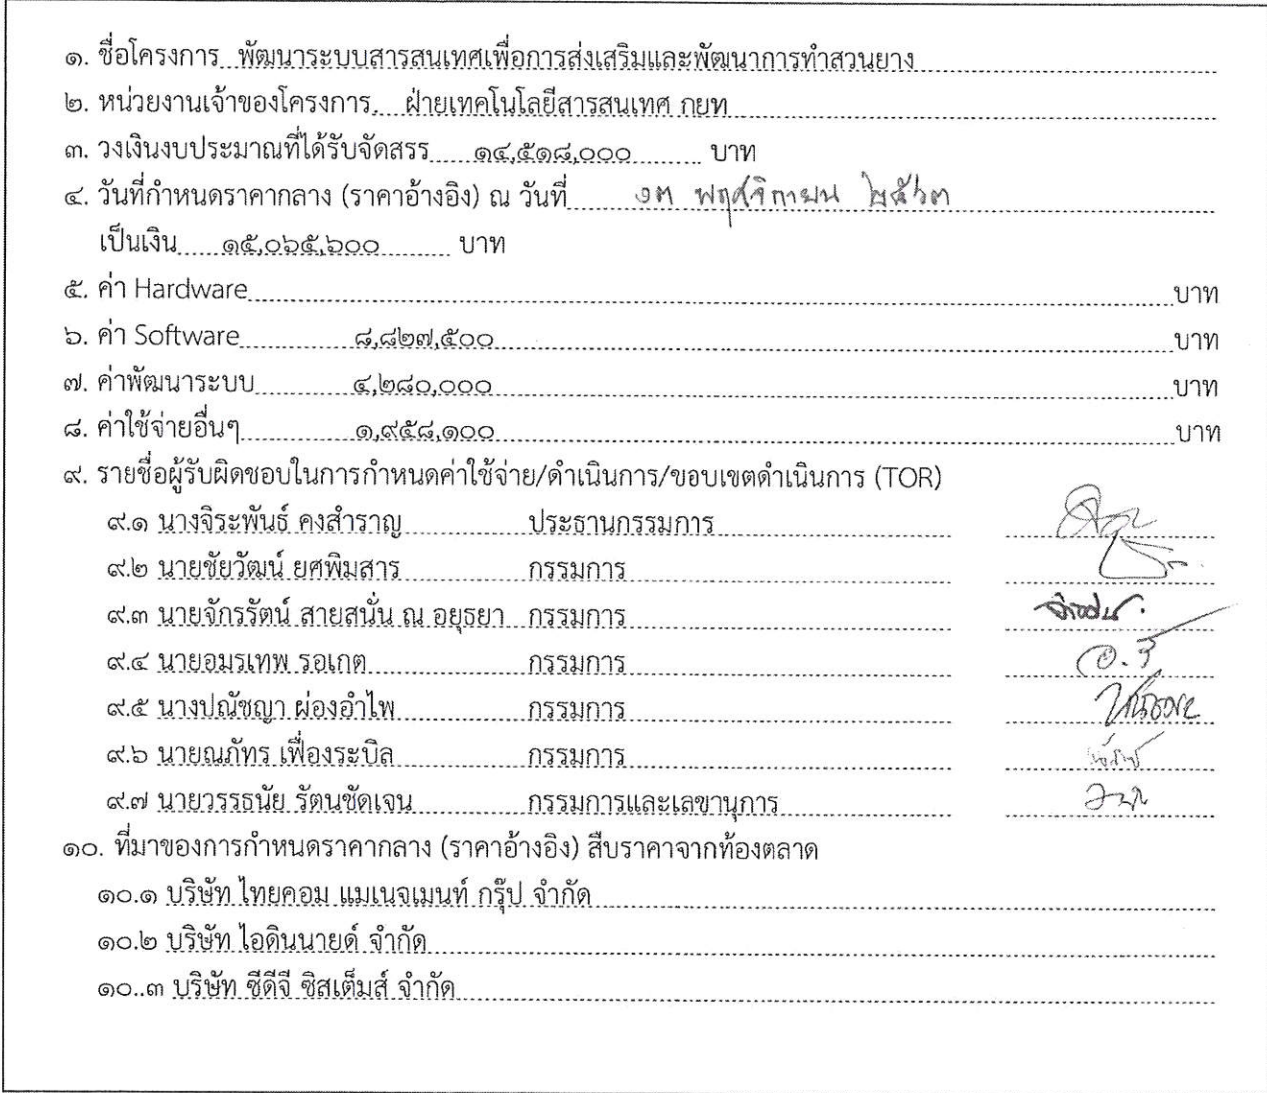 ๑. ชื่อโครงการ พัฒนาระบบสารสนเทศเพื่อการส่งเสริมและพัฒนาการทำสวนยาง
๒. หน่วยงานเจ้าของโครงการ ฝ่ายเทคโนโลยีสารสนเทศ กยท
๓. วงเงินงบประมาณที่ได้รับจัดสรร ๑๔,๕๑๘,๐๐๐ บาท
๔. วันที่กำหนดราคากลาง (ราคาอ้างอิง) ณ วันที่ ๑๓ พฤศจิกายน ๒๕๖๓
เป็นเงิน ๑๕,๐๖๕,๖๐๐ บาท
๕. ค่า Hardware บาท
๖. ค่า Software ๘,๘๒๗,๕๐๐ บาท
๗. ค่าพัฒนาระบบ ๔,๒๘๐,๐๐๐ บาท
๘. ค่าใช้จ่ายอื่นๆ ๑,๙๕๘,๑๐๐ บาท
๙. รายชื่อผู้รับผิดชอบในการกำหนดค่าใช้จ่าย/ดำเนินการ/ขอบเขตดำเนินการ (TOR)
๙.๑ นางจิระพันธ์ คงสำราญ ประธานกรรมการ
๙.๒ นายชัยวัฒน์ ยศพิมสาร กรรมการ
๙.๓ นายจักรรัตน์ สายสนั่น ณ อยุธยา กรรมการ
๙.๔ นายอมรเทพ รอเกต กรรมการ
๙.๕ นางปณัชญา ผ่องอำไพ กรรมการ
๙.๖ นายณภัทร เฟื่องระบิล กรรมการ
๙.๗ นายวรรธนัย รัตนชัดเจน กรรมการและเลขานุการ
๑๐. ที่มาของการกำหนดราคากลาง (ราคาอ้างอิง) สืบราคาจากท้องตลาด
๑๐.๑ บริษัท ไทยคอม แมเนจเมนท์ กรุ๊ป จำกัด
๑๐.๒ บริษัท ไอดินนายด์ จำกัด
๑๐..๓ บริษัท ซีดีจี ซิสเต็มส์ จำกัด